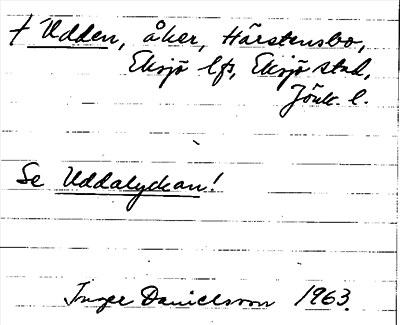 † Udden, åker, Härstensbo,
Eksjö lfs, Eksjö stad,
Jönk. l.
Se Uddalyckan!
Inger Danielsson 1963.